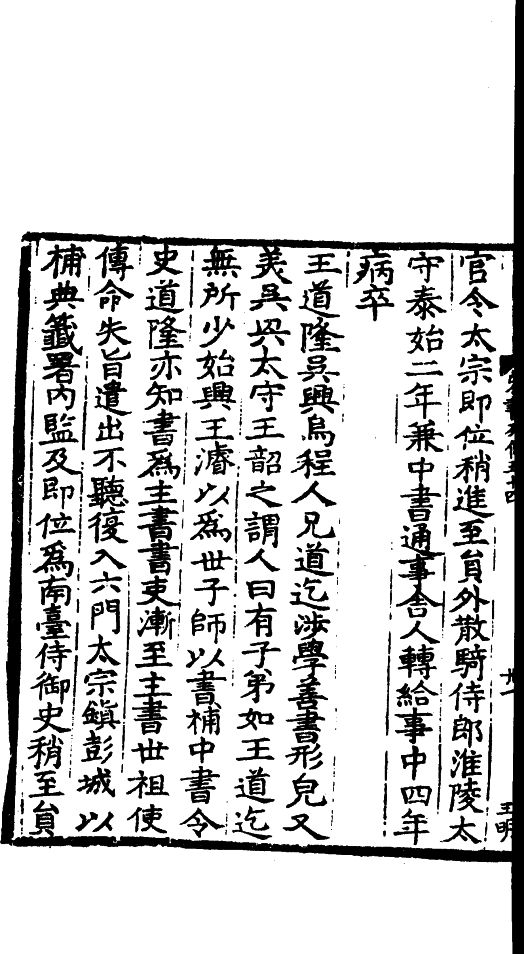 官令太宗即位稍進至貟外散騎侍郎淮陵太
守泰始二年兼中書通事舎人轉給事中四年
病卒
王道隆吳興烏程人兄道迄渉學善書形皃又
羙吳興太守王韶之謂人曰有子弟如王道迄
無所少始興王濬以爲世子師以書補中書令
史道隆亦知書爲主書書吏漸至主書世祖使
傳命失旨遣出不聽復入六門太宗鎮彭城以
補典籖署内監及即位爲南臺侍御史稍至貟
王明